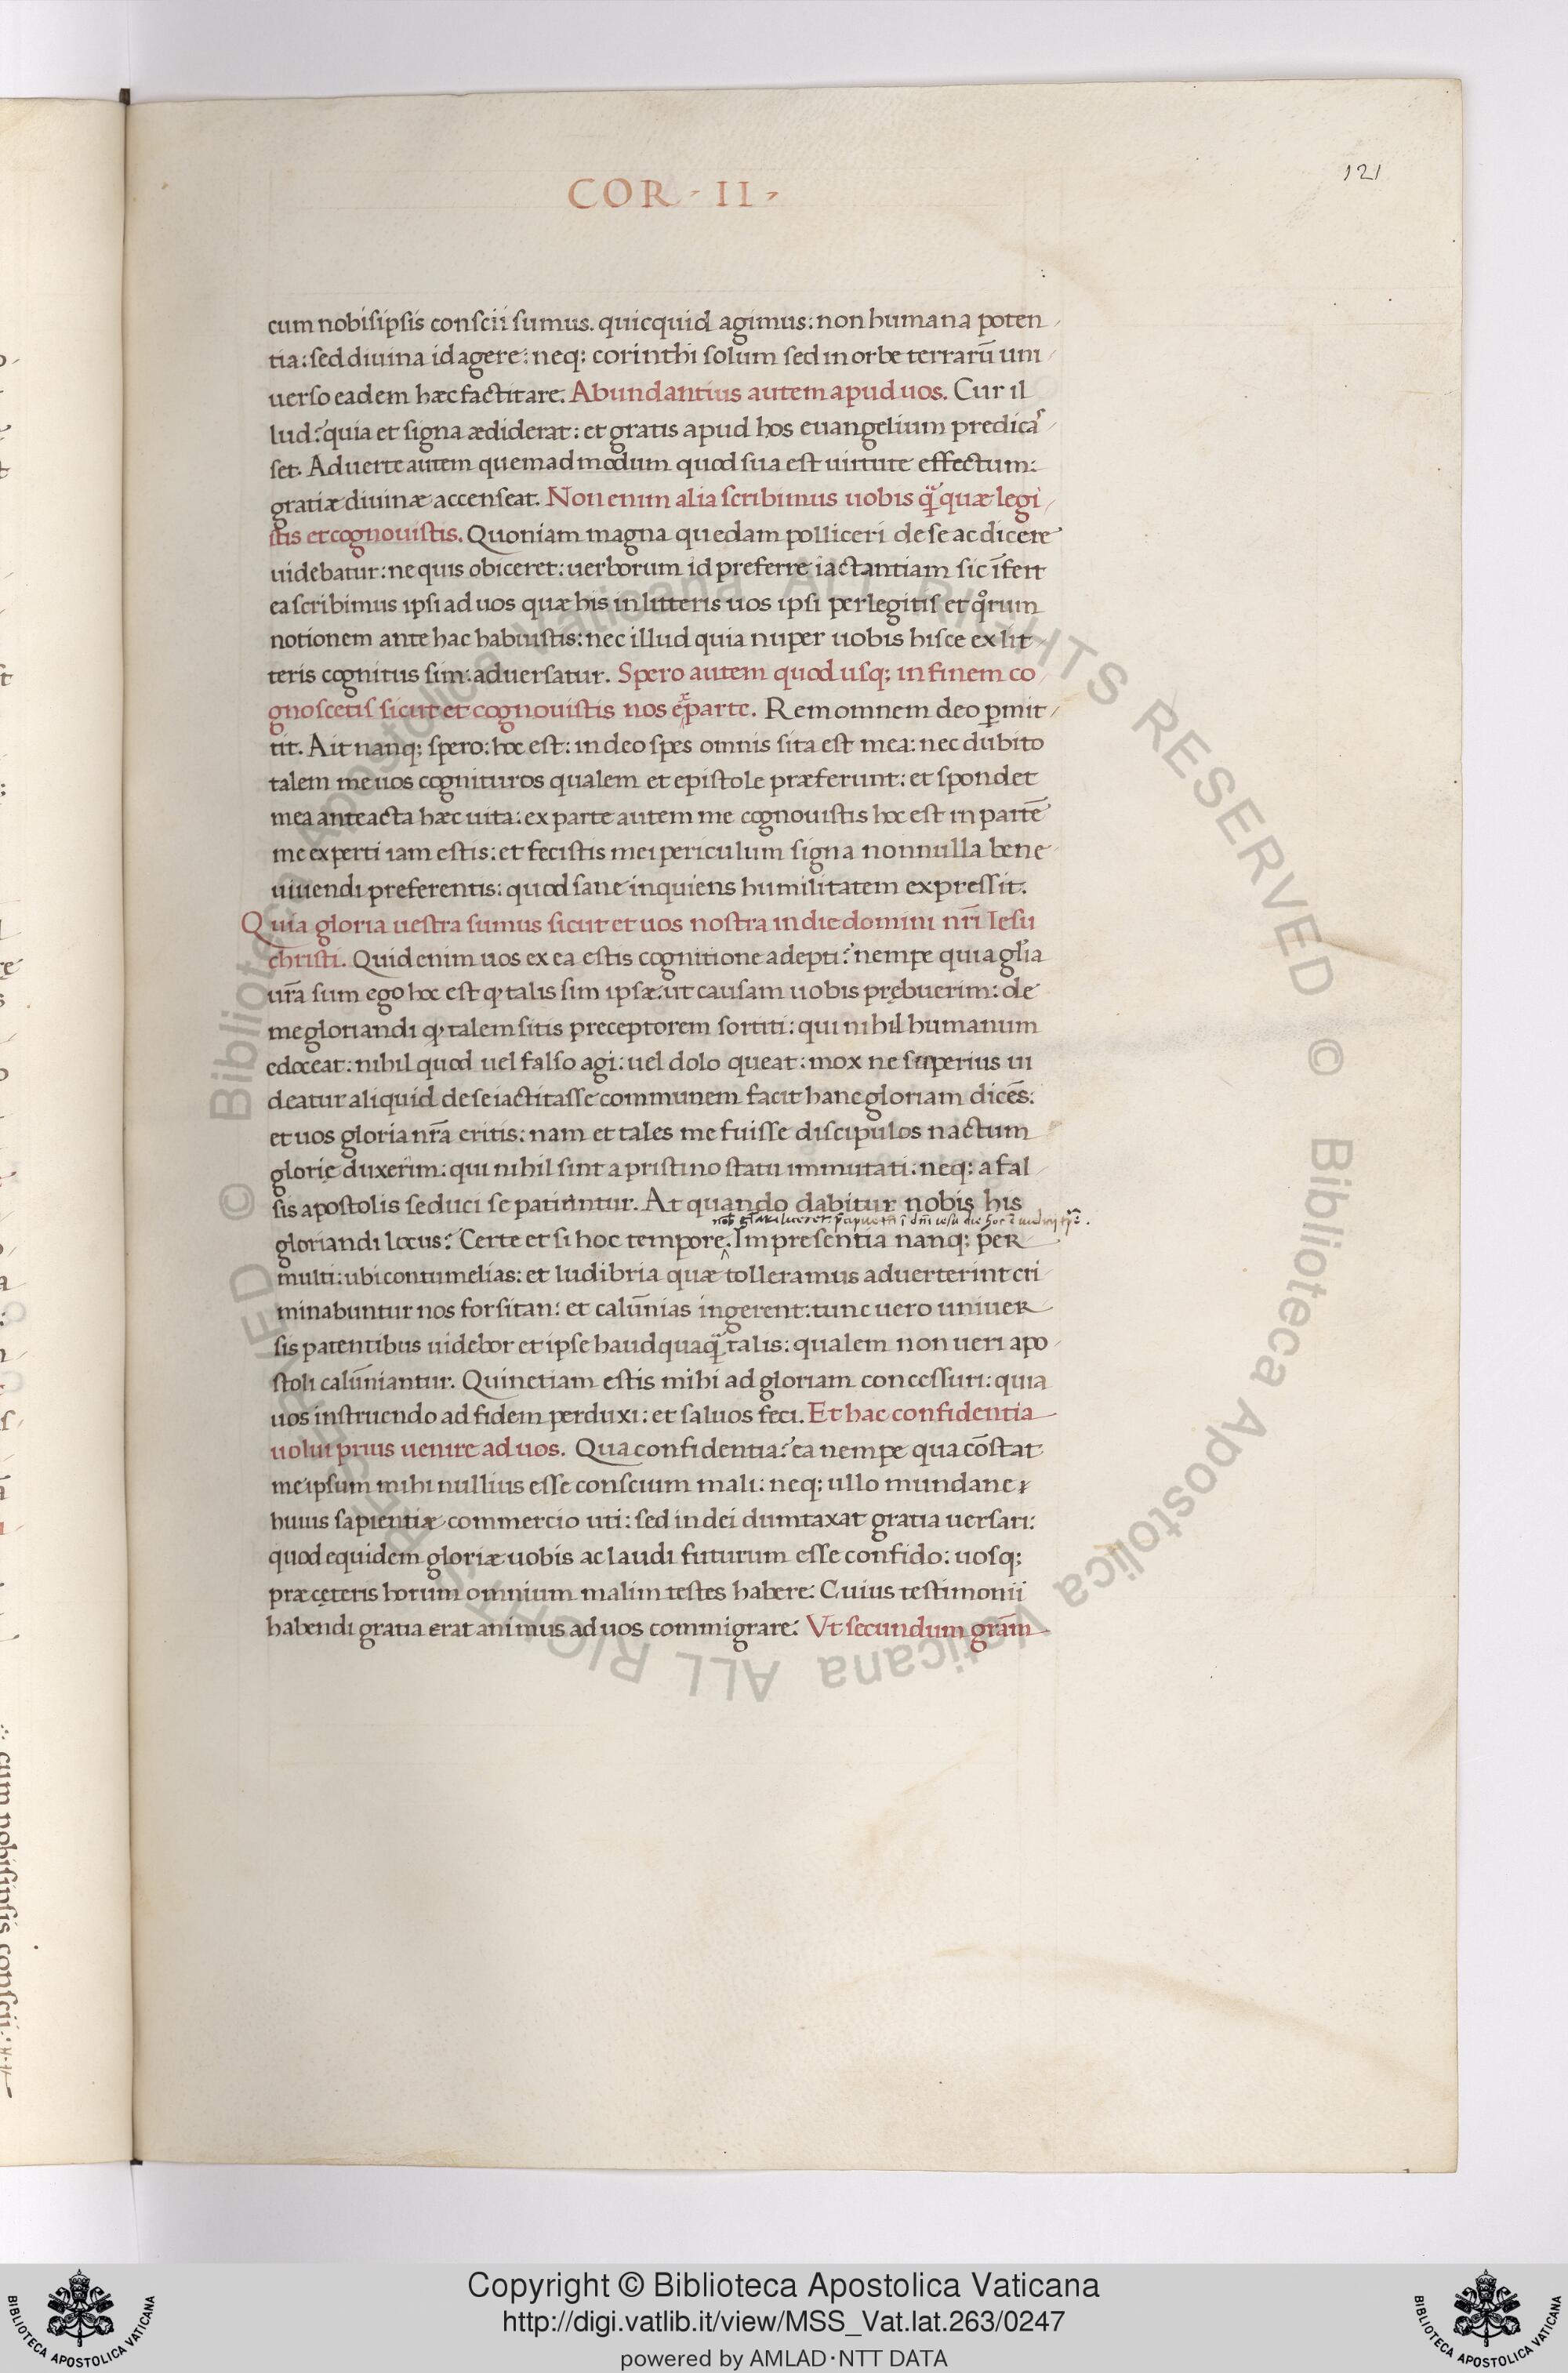 121
COR · II ·
cum nobisipsis conscii sumus. quicquid agimus: non humana poten
tia: sed diuina id agere: neq; corinthi solum sed in orbe terrarũ uni
uerso eadem hæc factitare. Abundantius autem apud uos. Cur il
lud? quia et signa ædiderat: et gratis apud hos euangelium predicaſ
set. Aduerte autem quemadmodum quod sua est uirtute effectum:
gratiæ diuinæ accenseat. Non enim alia scribimus uobis q̃ quæ legi
stis et cognouistis. Quoniam magna quedam polliceri de se ac dicere
uidebatur: ne quis obiceret: uerborum id preferre iactantiam sic ĩfert
ea scribimus ipsi ad uos quæ his in litteris uos ipsi perlegitis et qͦrum
notionem ante hac habuistis: nec illud quia nuper uobis hisce ex lit
teris cognitus sim: aduersatur. Spero autem quod usq; in finem co
gnoscetis sicut et cognouistis nos ex parte. Rem omnem deo ꝑmit
tit. Ait nanq; spero: hoc est: in deo spes omnis sita est mea: nec dubito
talem me uos cognituros qualem et epistole præferunt: et spondet
mea anteacta hæc uita: ex parte autem me cognouistis hoc est in partẽ
me experti iam estis: et fecistis mei periculum signa nonnulla bene
uiuendi preferentis: quod sane inquiens humilitatem expressit.
Quia gloria uestra sumus sicut et uos nostra in die domini nr̃i Iesu
christi. Quid enim uos ex ea estis cognitione adepti? nempe quia gl̃ia
ur̃a sum ego hoc est ꝙ talis sim ipsæ: ut causam uobis prębuerim: de
me gloriandi ꝙ talem sitis preceptorem sortiti: qui nihil humanum
edoceat: nihil quod uel falso agi: uel dolo queat: mox ne superius ui
deatur aliquid de se iactitasse communem facit hanc gloriam dicẽs:
et uos gloria nr̃a eritis: nam et tales me fuisse discipulos nactum
glorię duxerim: qui nihil sint a pristino statu immutati: neq; a fal
sis apostolis seduci se patiantur. At quando dabitur nobis his
gloriandi locus? Certe et si hoc tempore. Impresentia nanq; per
multi: ubi contumelias: et ludibria quæ tolleramus aduerterint cri
minabuntur nos forsitan: et calũnias ingerent: tunc uero uniuer
sis patentibus uidebor et ipse haudquaq̃ talis: qualem non ueri apo
stoli calũniantur. Quinetiam estis mihi ad gloriam concessuri: quia
uos instruendo ad fidem perduxi: et saluos feci. Et hac confidentia
uolui prius uenire ad uos. Qua confidentia? ea nempe qua cõstat
me ipsum mihi nullius esse conscium mali: neq; ullo mundane
huius sapientiæ commercio uti: sed in dei dumtaxat gratia uersari:
quod equidem gloriæ uobis ac laudi futurum esse confido: uosq;
præ cęteris horum omnium malim testes habere: Cuius testimonii
habendi gratia erat animus ad uos commigrare: Vt secundum gram̃
cum nobisipsis conscii
Copyright © Biblioteca Apostolica Vaticana
http://digi.vatlib.it/view/MSS_Vat.lat.263/0247
powered by AMLAD·NTT DATA
BIBLIOTECA APOSTOLICA VATICANA
BIBLIOTECA APOSTOLICA VATICANA
© Biblioteca Apostolica Vaticana ALL RIGHTS RESERVED © Biblioteca Apostolica Vaticana ALL RIGHTS RESERVED